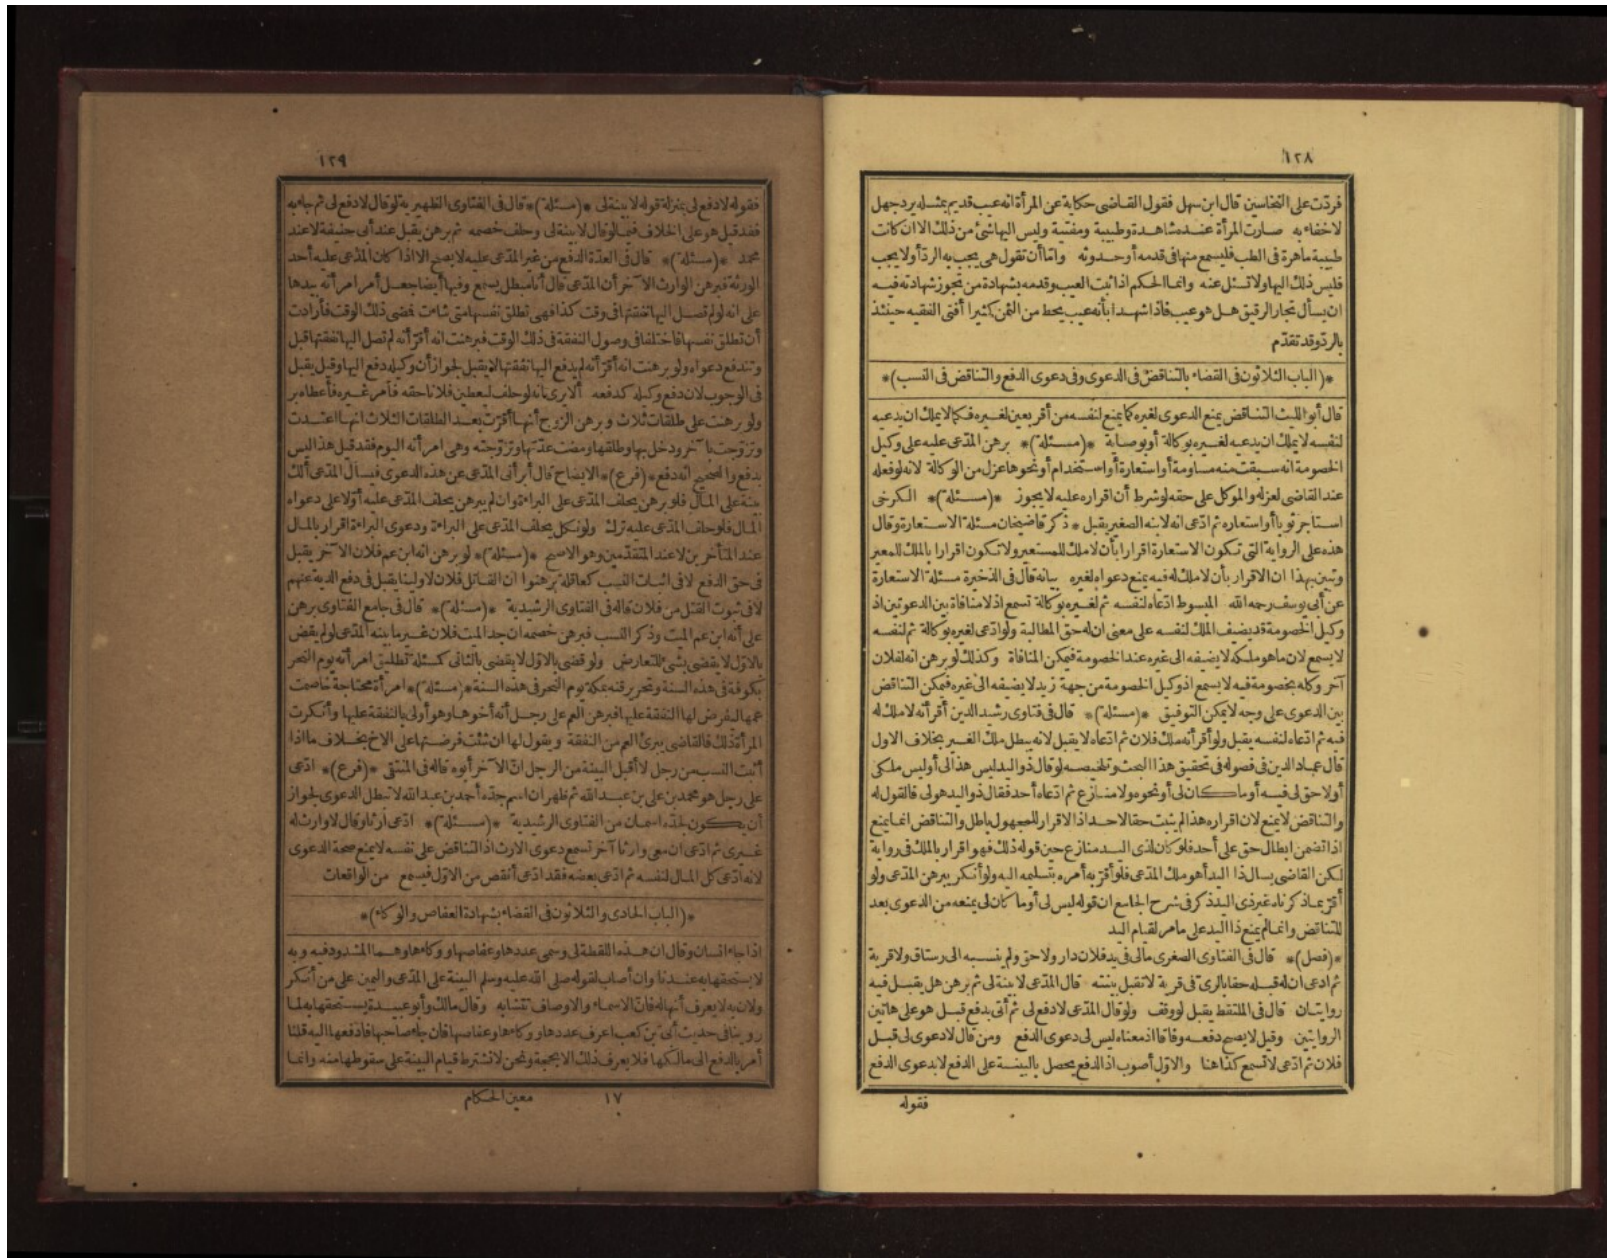 ١٢٨
فردّت على النخاسين قال ابن سهل فقول القاضى حكاية عن المرأة انه عيب قديم بمثله يرد جهل
لاخفاء به صارت المرأة عنده شاهدة وطبيبة ومفتية وليس اليها شئ من ذلك الا ان كانت
طبيبة ماهرة فى الطب فليسمع منها فى قدمه أو حدوثه واما أن تقول هى يجب به الرد أولا يجب
فليس ذلك اليها ولا تسئل عنه وانما الحكم اذا ثبت العيب وقدمه بشهادة من تجوز شهادته فيه
ان يسأل تجار الرقيق هل هو عيب فاذا شهدا بأنه عيب يحط من الثمن كثيرا أفتى الفقيه حينئذ
بالرد وقد تقدّم
*(الباب الثلاثون فى القضاء بالتناقض فى الدعوى وفى دعوى الدفع والتناقض فى النسب)*
قال أبو الليث التناقض يمنع الدعوى لغيره كما يمنع لنفسه من أقر بعين لغيره فكما لا يملك ان يدعيه
لنفسه لا يملك ان يدعيه لغيره بوكالة أو بوصاية *(مسئلة)* برهن المدّعى عليه على وكيل
الخصومة انه سبقت منه مساومة أو استعارة أو استخدام أو نحوها عزل من الوكالة لانه لو فعله
عند القاضى لعزله والموكل على حقه لو شرط أن اقراره عليه لا يجوز *(مسئلة)* الكرخى
استاجر ثوبا أو استعاره ثم ادّعى انه لابنه الصغير يقبل * ذكر قاضيخان مسئلة الاستعارة وقال
هذه على الرواية التى تكون الاستعارة اقرارا بأن لا ملك للمستعير ولا تكون اقرارا بالملك للمعير
وتبين بهذا ان الاقرار بأن لا ملك له فيه يمنع دعواه لغيره بيانه قال فى الذخيرة مسئلة الاستعارة
عن أبى يوسف رحمه الله المبسوط ادّعاه لنفسه ثم لغيره بوكالة تسمع اذ لا منافاة بين الدعوتين اذ
وكيل الخصومة قد يضيف الملك لنفسه على معنى ان له حق المطالبة ولو ادّعى لغيره بوكالة ثم لنفسه
لا يسمع لان ما هو ملكه لا يضيفه الى غيره عند الخصومة فيمكن المنافاة وكذلك لو برهن انه لفلان
آخر وكله بخصومة فيه لا يسمع اذ وكيل الخصومة من جهة زيد لا يضيفه الى غيره فيمكن التناقض
بين الدعوى على وجه لا يمكن التوفيق *(مسئلة)* قال فى فتاوى رشيد الدين أقر أنه لا ملك له
فيه ثم ادّعاه لنفسه يقبل ولو أقر أنه ملك فلان ثم ادّعاه لا يقبل لانه يبطل ملك الغير بخلاف الاول
قال عماد الدين فى فصوله فى تحقيق هذا البحث وتلخيصه لو قال ذو اليد ليس هذا لى أو ليس ملكى
أو لا حق لى فيه أو ما كان لى أو نحوه ولا منازع ثم ادّعاه أحد فقال ذو اليد هو لى فالقول له
والتناقض لا يمنع لان اقراره هذا لم يثبت حقا لاحد اذ الاقرار للمجهول باطل والتناقض انما يمنع
اذا تضمن ابطال حق على أحد فلو كان لذى اليد منازع حين قوله ذلك فهو اقرار بالملك فى رواية
لكن القاضى يسال ذا اليد أهو ملك المدّعى فلو أقرّ به أمره بتسليمه اليه ولو أنكر يبرهن المدّعى ولو
أقرّ بما ذكرناه غير ذى اليد ذكر فى شرح الجامع ان قوله ليس لى أو ما كان لى يمنعه من الدعوى بعد
للتناقض وانما لم يمنع ذا اليد على ما مر لقيام اليد
*(فصل)* قال فى الفتاوى الصغرى مالى فى يد فلان دار ولا حق ولم ينسبه الى رستاق ولا قرية
ثم ادعى ان له قبله حقا بالرى فى قرية لا تقبل بينته قال المدّعى لا بينة لى ثم برهن هل يقبل فيه
روايتان قال فى الملتقط يقبل لو وقف ولو قال المدّعى لا دفع لى ثم أتى بدفع قبل هو على هاتين
الروايتين وقيل لا يصح دفعه وفاقا اذ معناه ليس لى دعوى الدفع ومن قال لا دعوى لى قبل
فلان ثم ادّعى لا تسمع كذا هنا والاوّل أصوب اذ الدفع يحصل بالبينة على الدفع لا بدعوى الدفع
فقوله
١٢٩
فقوله لا دفع لى بمنزلة قوله لا بينة لى *(مسئلة)* قال فى الفتاوى الظهيرية لو قال لا دفع لى ثم جاء به
فقد قيل هو على الخلاف فيما لو قال لا بينة لى وحلف خصمه ثم برهن يقبل عند أبى حنيفة لا عند
محمد *(مسئلة)* قال فى العدّة الدفع من غير المدّعى عليه لا يصح الا اذا كان المدّعى عليه أحد
الورثة فبرهن الوارث الآخر أن المدّعى قال أنا مبطل يسمع وفيها أيضا جعل أمر امرأته بيدها
على انه لو لم تصل اليها نفقتها فى وقت كذا فهى تطلق نفسها متى شاءت فمضى ذلك الوقت فأرادت
أن تطلق نفسها فاختلفا فى وصول النفقة فى ذلك الوقت فبرهنت انه أقرّ أنه لم تصل اليها نفقتها قبل
وتندفع دعواه ولو برهنت انه أقرّ أنه لم يدفع اليها نفقتها لا يقبل لجواز أن وكيله دفع اليها وقيل يقبل
فى الوجوب لان دفع وكيله كدفعه ألا يرى بأنه لو حلف ليعطين فلانا حقه فأمر غيره فأعطاه بر
ولو برهنت على طلقات ثلاث وبرهن الزوج أنها أقرّت بعد الطلقات الثلاث انها اعتدت
وتزوّجت بآخر ودخل بها وطلقها ومضت عدّتها وتزوّجته وهى امرأته اليوم فقد قيل هذا ليس
بدفع والصحيح انه دفع *(فرع)* الايضاح قال أبرأنى المدّعى عن هذه الدعوى فيسأل المدّعى ألك
بينة على المال فلو برهن يحلف المدّعى على البراءة وان لم يبرهن يحلف المدّعى عليه أوّلا على دعواه
المال فلو حلف المدّعى عليه ترك ولو نكل يحلف المدّعى على البراءة ودعوى البراءة اقرار بالمال
عند المتأخرين لا عند المتقدّمين وهو الاصح *(مسئلة)* لو برهن انه ابن عم فلان الآخر يقبل
فى حق الدفع لا فى اثبات النسب كعاقلة برهنوا ان القاتل فلان لا ولينا يقبل فى دفع الدية عنهم
لا فى ثبوت القتل من فلان قاله فى الفتاوى الرشيدية *(مسئلة)* قال فى جامع الفتاوى برهن
على أنه ابن عم الميت وذكر النسب فبرهن خصمه ان جد الميت فلان غير ما بينه المدّعى لو لم يقض
بالاوّل لا يقضى بشئ للتعارض ولو قضى بالاوّل لا يقضى بالثانى كمسئلة تطليق امرأته يوم النحر
بكوفة فى هذه السنة وتحرير قنه بمكة يوم النحر فى هذه السنة *(مسئلة)* امرأة محتاجة خاصمت
عمها ليفرض لها النفقة عليها فبرهن العم على رجل أنه أخوها وهو أولى بالنفقة عليها وأنكرت
المرأة ذلك فالقاضى يبرئ العم من النفقة ويقول لها ان شئت فرضتها على الاخ بخلاف ما اذا
أثبت النسب من رجل لا أقبل البينة من الرجل انّ الآخر أبوه قاله فى المنتقى *(فرع)* ادّعى
على رجل هو محمد بن على بن عبد الله ثم ظهر ان اسم جدّه أحمد بن عبد الله لا تبطل الدعوى لجواز
أن يكون لجدّه اسمان من الفتاوى الرشيدية *(مسئلة)* ادّعى أرثا وقال لا وارث له
غيرى ثم ادّعى ان معى وارثا آخر تسمع دعوى الارث اذ التناقض على نفسه لا يمنع صحة الدعوى
لانه ادّعى كل المال لنفسه ثم ادّعى بعضه فقد ادّعى أنقص من الاوّل فيسمع من الواقعات
*(الباب الحادى والثلاثون فى القضاء بشهادة العفاص والوكاء)*
اذا جاء انسان وقال ان هذه اللقطة لى وسمى عددها وعفاصها ووكاءها وهما المشدود فيه وبه
لا يستحقها به عندنا وان أصاب لقوله صلى الله عليه وسلم البينة على المدّعى واليمين على من أنكر
ولان به لا يعرف أنها له فانّ الاسماء والاوصاف تتشابه وقال مالك وأبو عبيدة يستحقها به لما
روينا فى حديث أبى بن كعب اعرف عددها ووكاءها وعفاصها فان جاء صاحبها فادفعها اليه قلنا
أمر بالدفع الى مالكها فلا يعرف ذلك الا بحجة ونحن لا نشترط قيام البينة على سقوطها منه وانما
١٧ معين الحكام